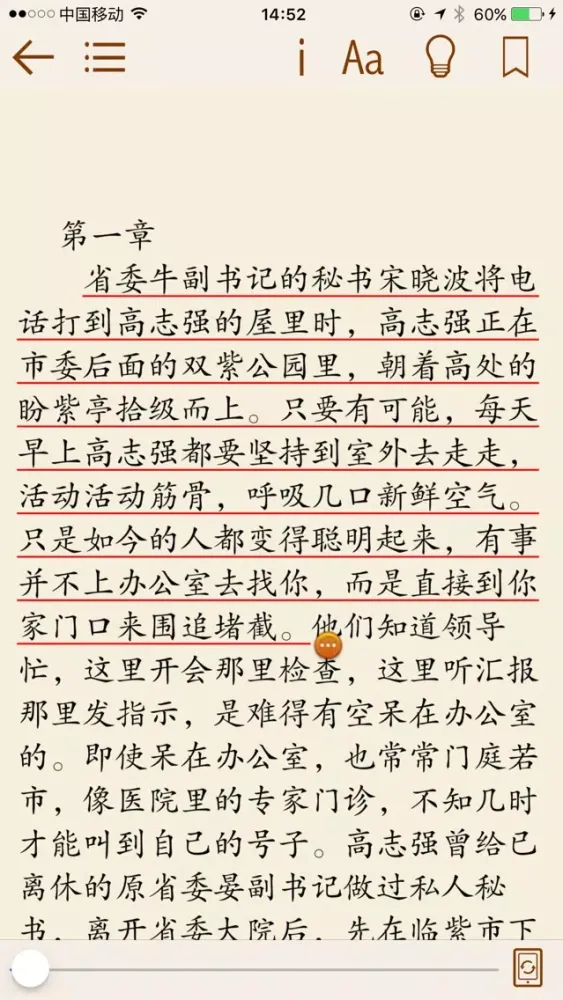 中国移动 14:52 60%
i Aa
第一章
省委牛副书记的秘书宋晓波将电
话打到高志强的屋里时，高志强正在
市委后面的双紫公园里，朝着高处的
盼紫亭拾级而上。只要有可能，每天
早上高志强都要坚持到室外去走走，
活动活动筋骨，呼吸几口新鲜空气。
只是如今的人都变得聪明起来，有事
并不上办公室去找你，而是直接到你
家门口来围追堵截。他们知道领导
忙，这里开会那里检查，这里听汇报
那里发指示，是难得有空呆在办公室
的。即使呆在办公室，也常常门庭若
市，像医院里的专家门诊，不知几时
才能叫到自己的号子。高志强曾给已
离休的原省委晏副书记做过私人秘
书，离开省委大院后，先在临紫市下